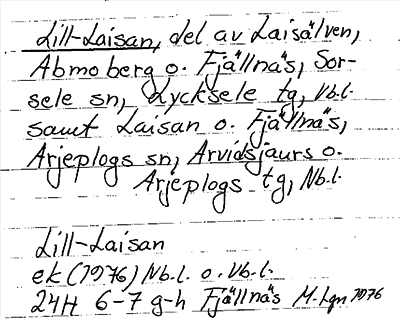 Lill-Laisan, del av Laisälven,
Abmoberg o. Fjällnäs, Sor-
sele sn, Lycksele tg, Vb.l.
samt Laisan o. Fjällnäs,
Arjeplogs sn, Arvidsjaurs o.
Arjeplogs tg, Nb.l.
Lill-Laisan
ek (1976) Nb.l. o. Vb.l.
24H 6-7 g-h Fjällnäs M. Lgn 1976